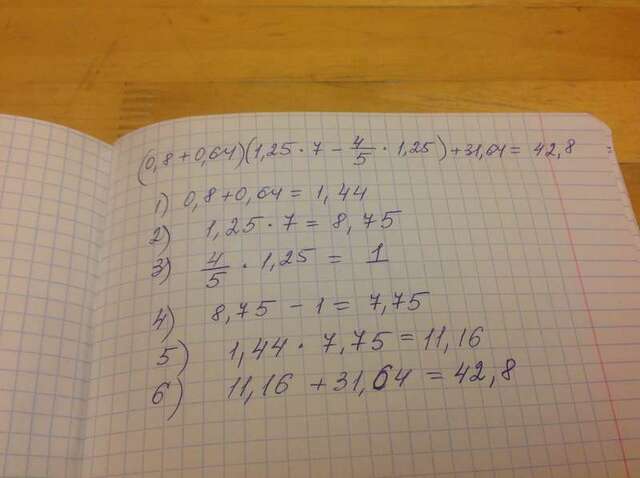 (0,8 + 0,64)(1,25 · 7 - 4/5 · 1,25) + 31,64 = 42,8 =
1) 0,8 + 0,64 = 1,44
2) 1,25 · 7 = 8,75
3) 4/5 · 1,25 = 1
4) 8,75 - 1 = 7,75
5) 1,44 · 7,75 = 11,16
6) 11,16 + 31,64 = 42,8